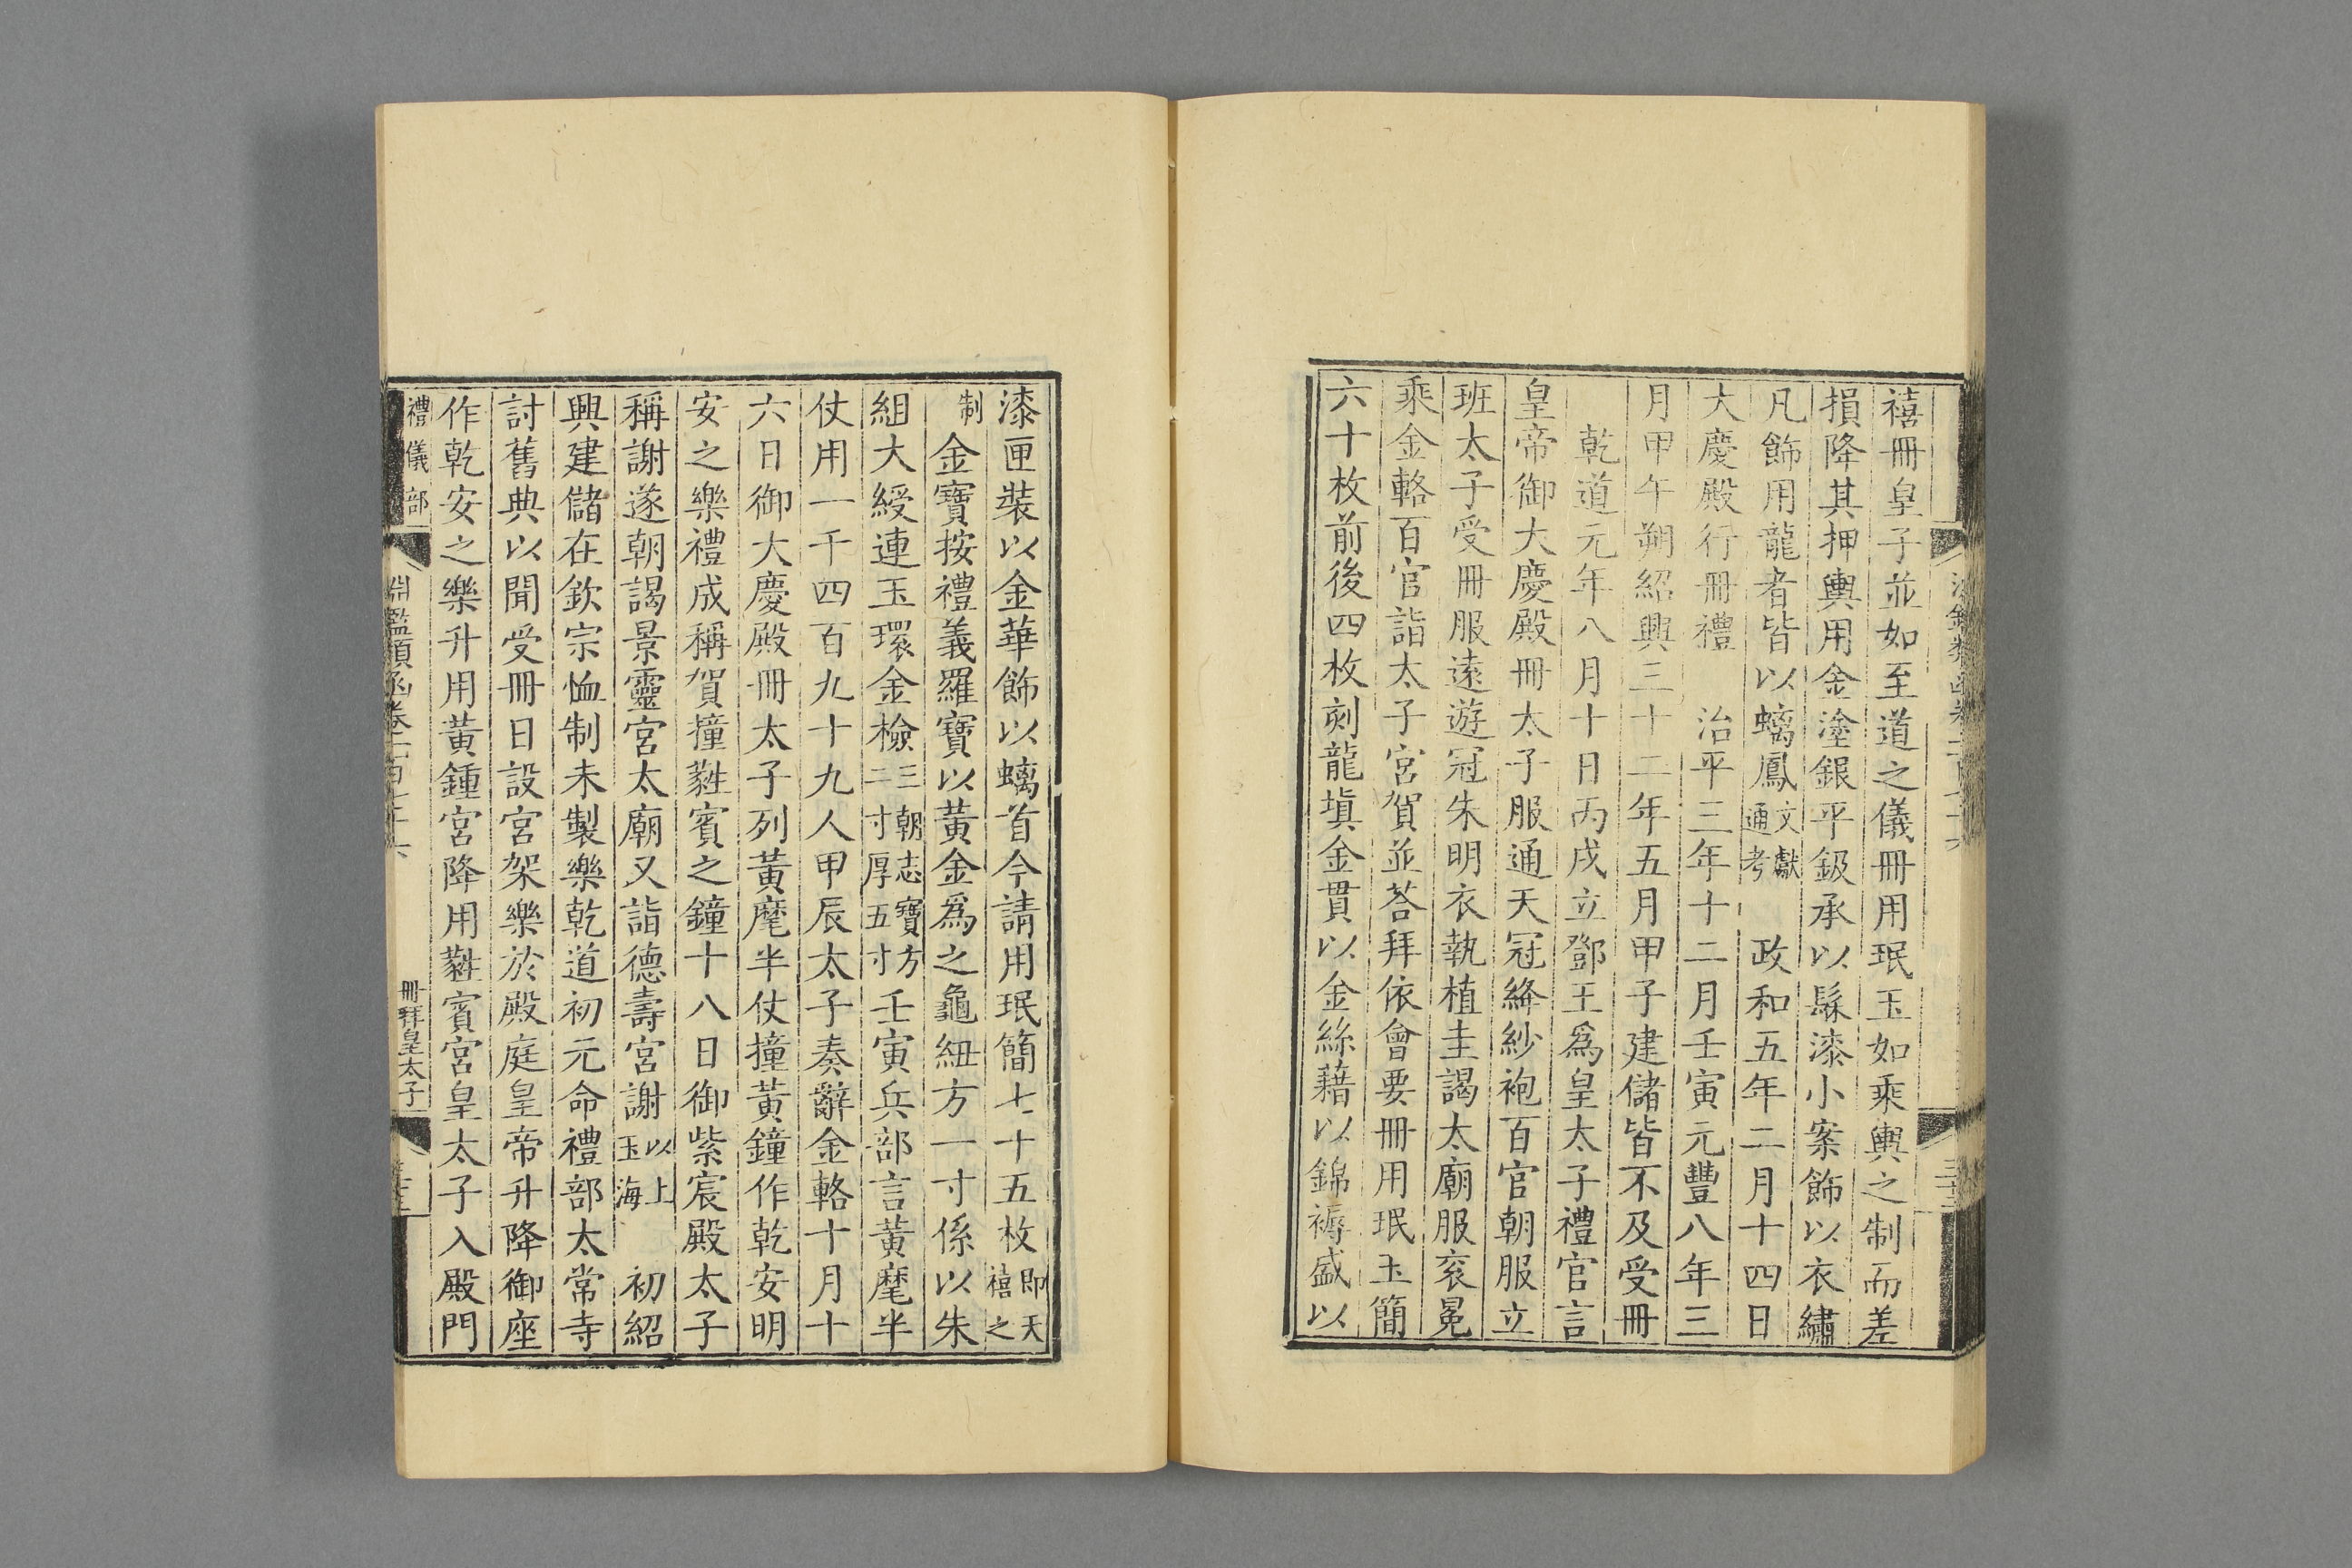 禧冊皇子並如至道之儀冊用珉玉如乘輿之制而差
損降其押輿用金塗銀平鈒承以髹漆小案飾以衣繡
凡飾用龍者皆以螭鳳文獻通考　政和五年二月十四日
大慶殿行冊禮　治平三年十二月壬寅元豐八年三
月甲午朔紹興三十二年五月甲子建儲皆不及受冊
　乾道元年八月十日丙戌立鄧王爲皇太子禮官言
皇帝御大慶殿冊太子服通天冠絳紗袍百官朝服立
班太子受冊服遠遊冠朱明衣執植圭謁太廟服衮冕
乘金輅百官詣太子宮賀並荅拜依會要冊用珉玉簡
六十枚前後四枚刻龍塡金貫以金絲藉以錦褥盛以
漆匣裝以金華飾以螭首今請用珉簡七十五枚即天禧之
制金寶按禮義羅寶以黃金爲之龜紐方一寸係以朱
組大綬連玉環金檢三朝志寶方二寸厚五寸壬寅兵部言黃麾半
仗用一千四百九十九人甲辰太子奏辭金輅十月十
六日御大慶殿冊太子列黃麾半仗撞黃鐘作乾安明
安之樂禮成稱賀撞蕤賓之鐘十八日御紫宸殿太子
稱謝遂朝謁景靈宮太廟又詣德壽宮謝以上玉海　初紹
興建儲在欽宗恤制未製樂乾道初元命禮部太常寺
討舊典以聞受冊日設宮架樂於殿庭皇帝升降御座
作乾安之樂升用黃鍾宮降用蕤賓宮皇太子入殿門
禮儀部
淵鑑類函卷一百七十六
冊拜皇太子